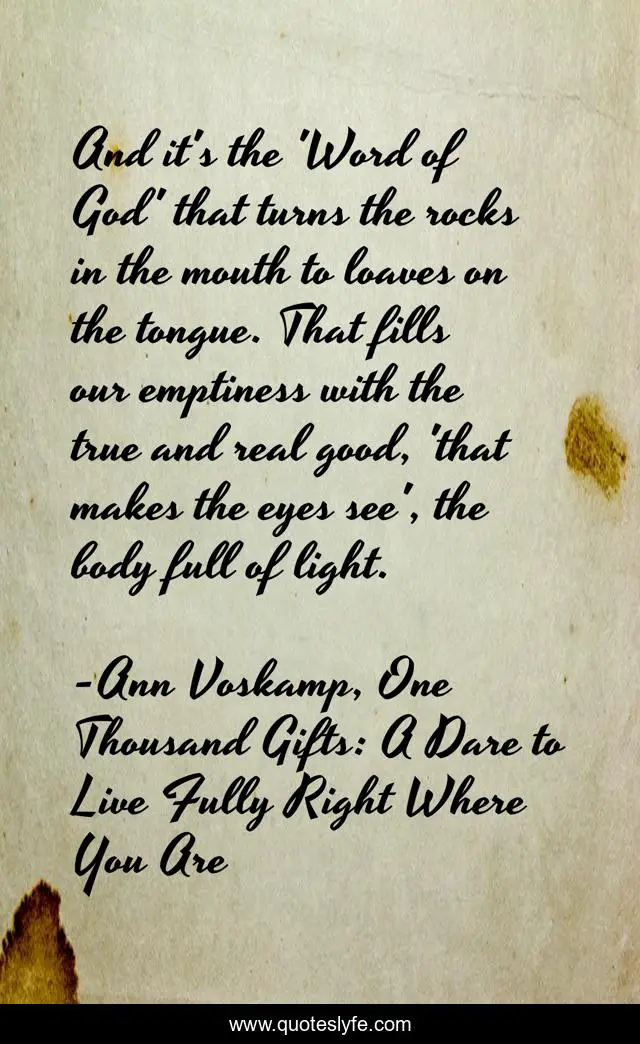 And it's the 'Word of
God' that turns the rocks
in the mouth to loaves on
the tongue. That fills
our emptiness with the
true and real good, 'that
makes the eyes see', the
body full of light.
-Ann Voskamp, One
Thousand Gifts: A Dare to
Live Fully Right Where
You Are
www.quoteslyfe.com